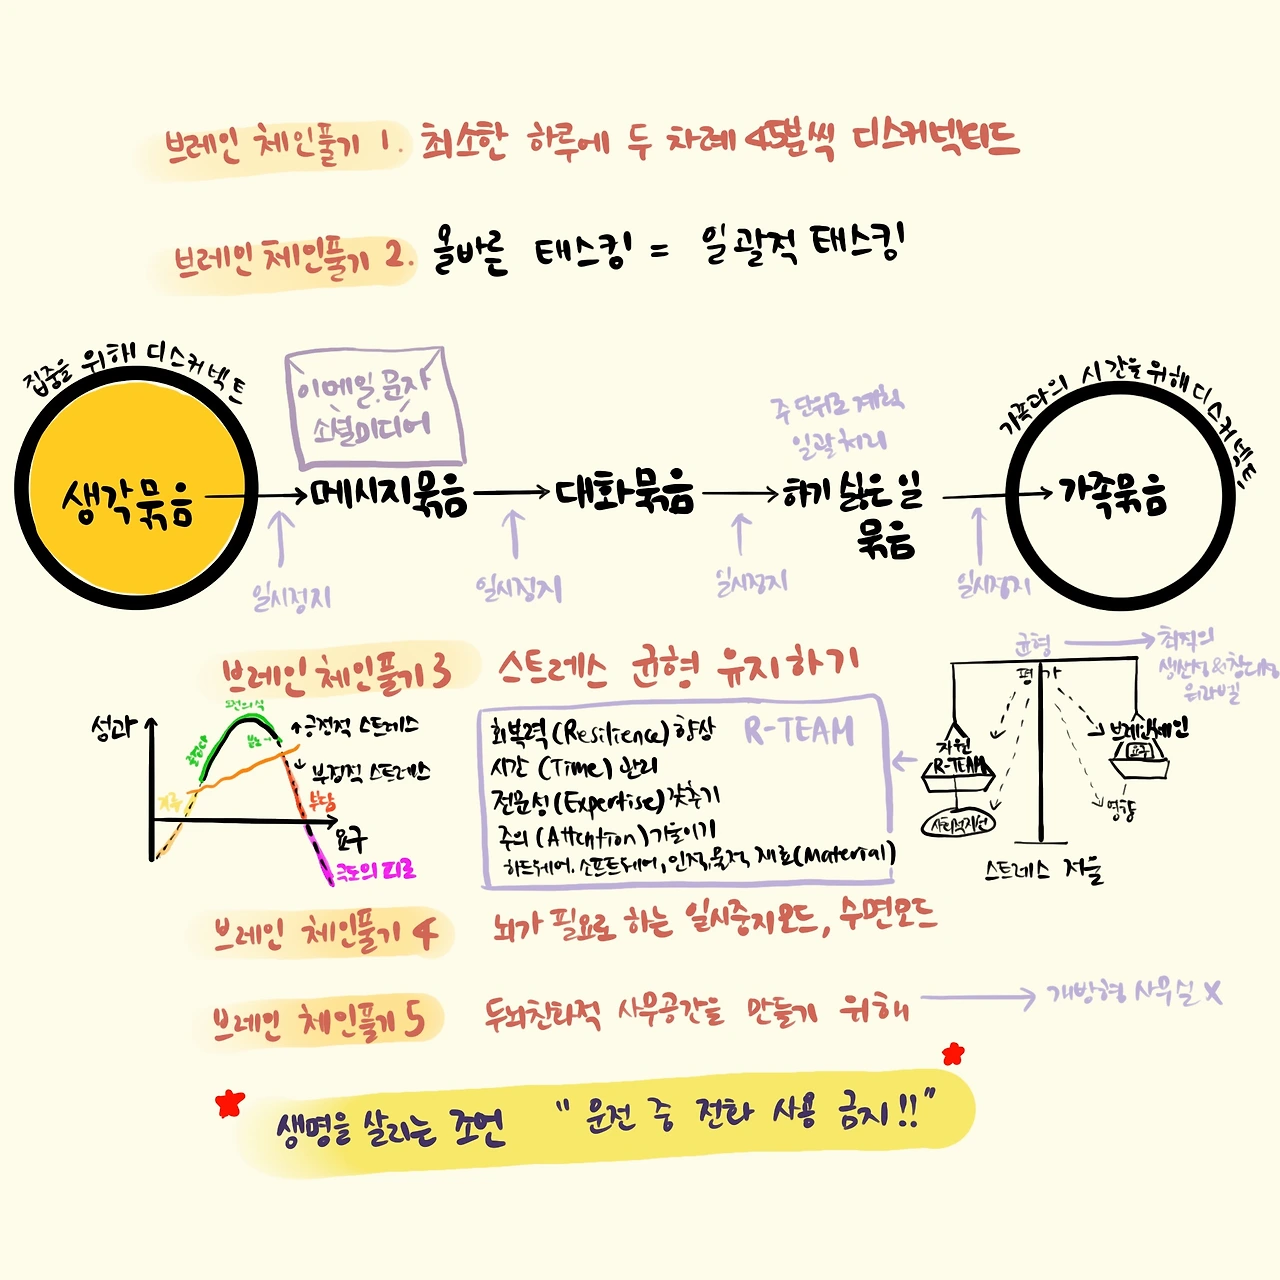 브레인 체인풀기 1. 최소한 하루에 두 차례 45분씩 디스커넥티드
브레인 체인풀기 2. 올바른 태스킹 = 일괄적 태스킹
집중을 위해 디스커넥트
이메일, 문자
소셜미디어
주 단위로 계획
일괄 처리
가족과의 시간을 위해 디스커넥트
생각묶음
메시지묶음
대화묶음
하기 싫은 일
묶음
가족묶음
일시정지
일시정지
일시정지
일시정지
브레인 체인풀기 3 스트레스 균형 유지하기
성과
긍정적 스트레스
부정적 스트레스
부담
요구
극도의 피로
R-TEAM
회복력 (Resilience) 향상
시간 (Time) 관리
전문성 (Expertise) 갖추기
주의 (Attention) 기울이기
하드웨어, 소프트웨어, 인적, 물적 재료(Material)
균형
최적의
생산성&창의성
워라벨
평가
자원
R-TEAM
브레인체인
요구
영향
스트레스 저울
브레인 체인풀기 4 뇌가 필요로 하는 일시중지모드, 수면모드
브레인 체인풀기 5 두뇌친화적 사무공간을 만들기 위해
개방형 사무실 X
생명을 살리는 조언 " 운전 중 전화 사용 금지!!"